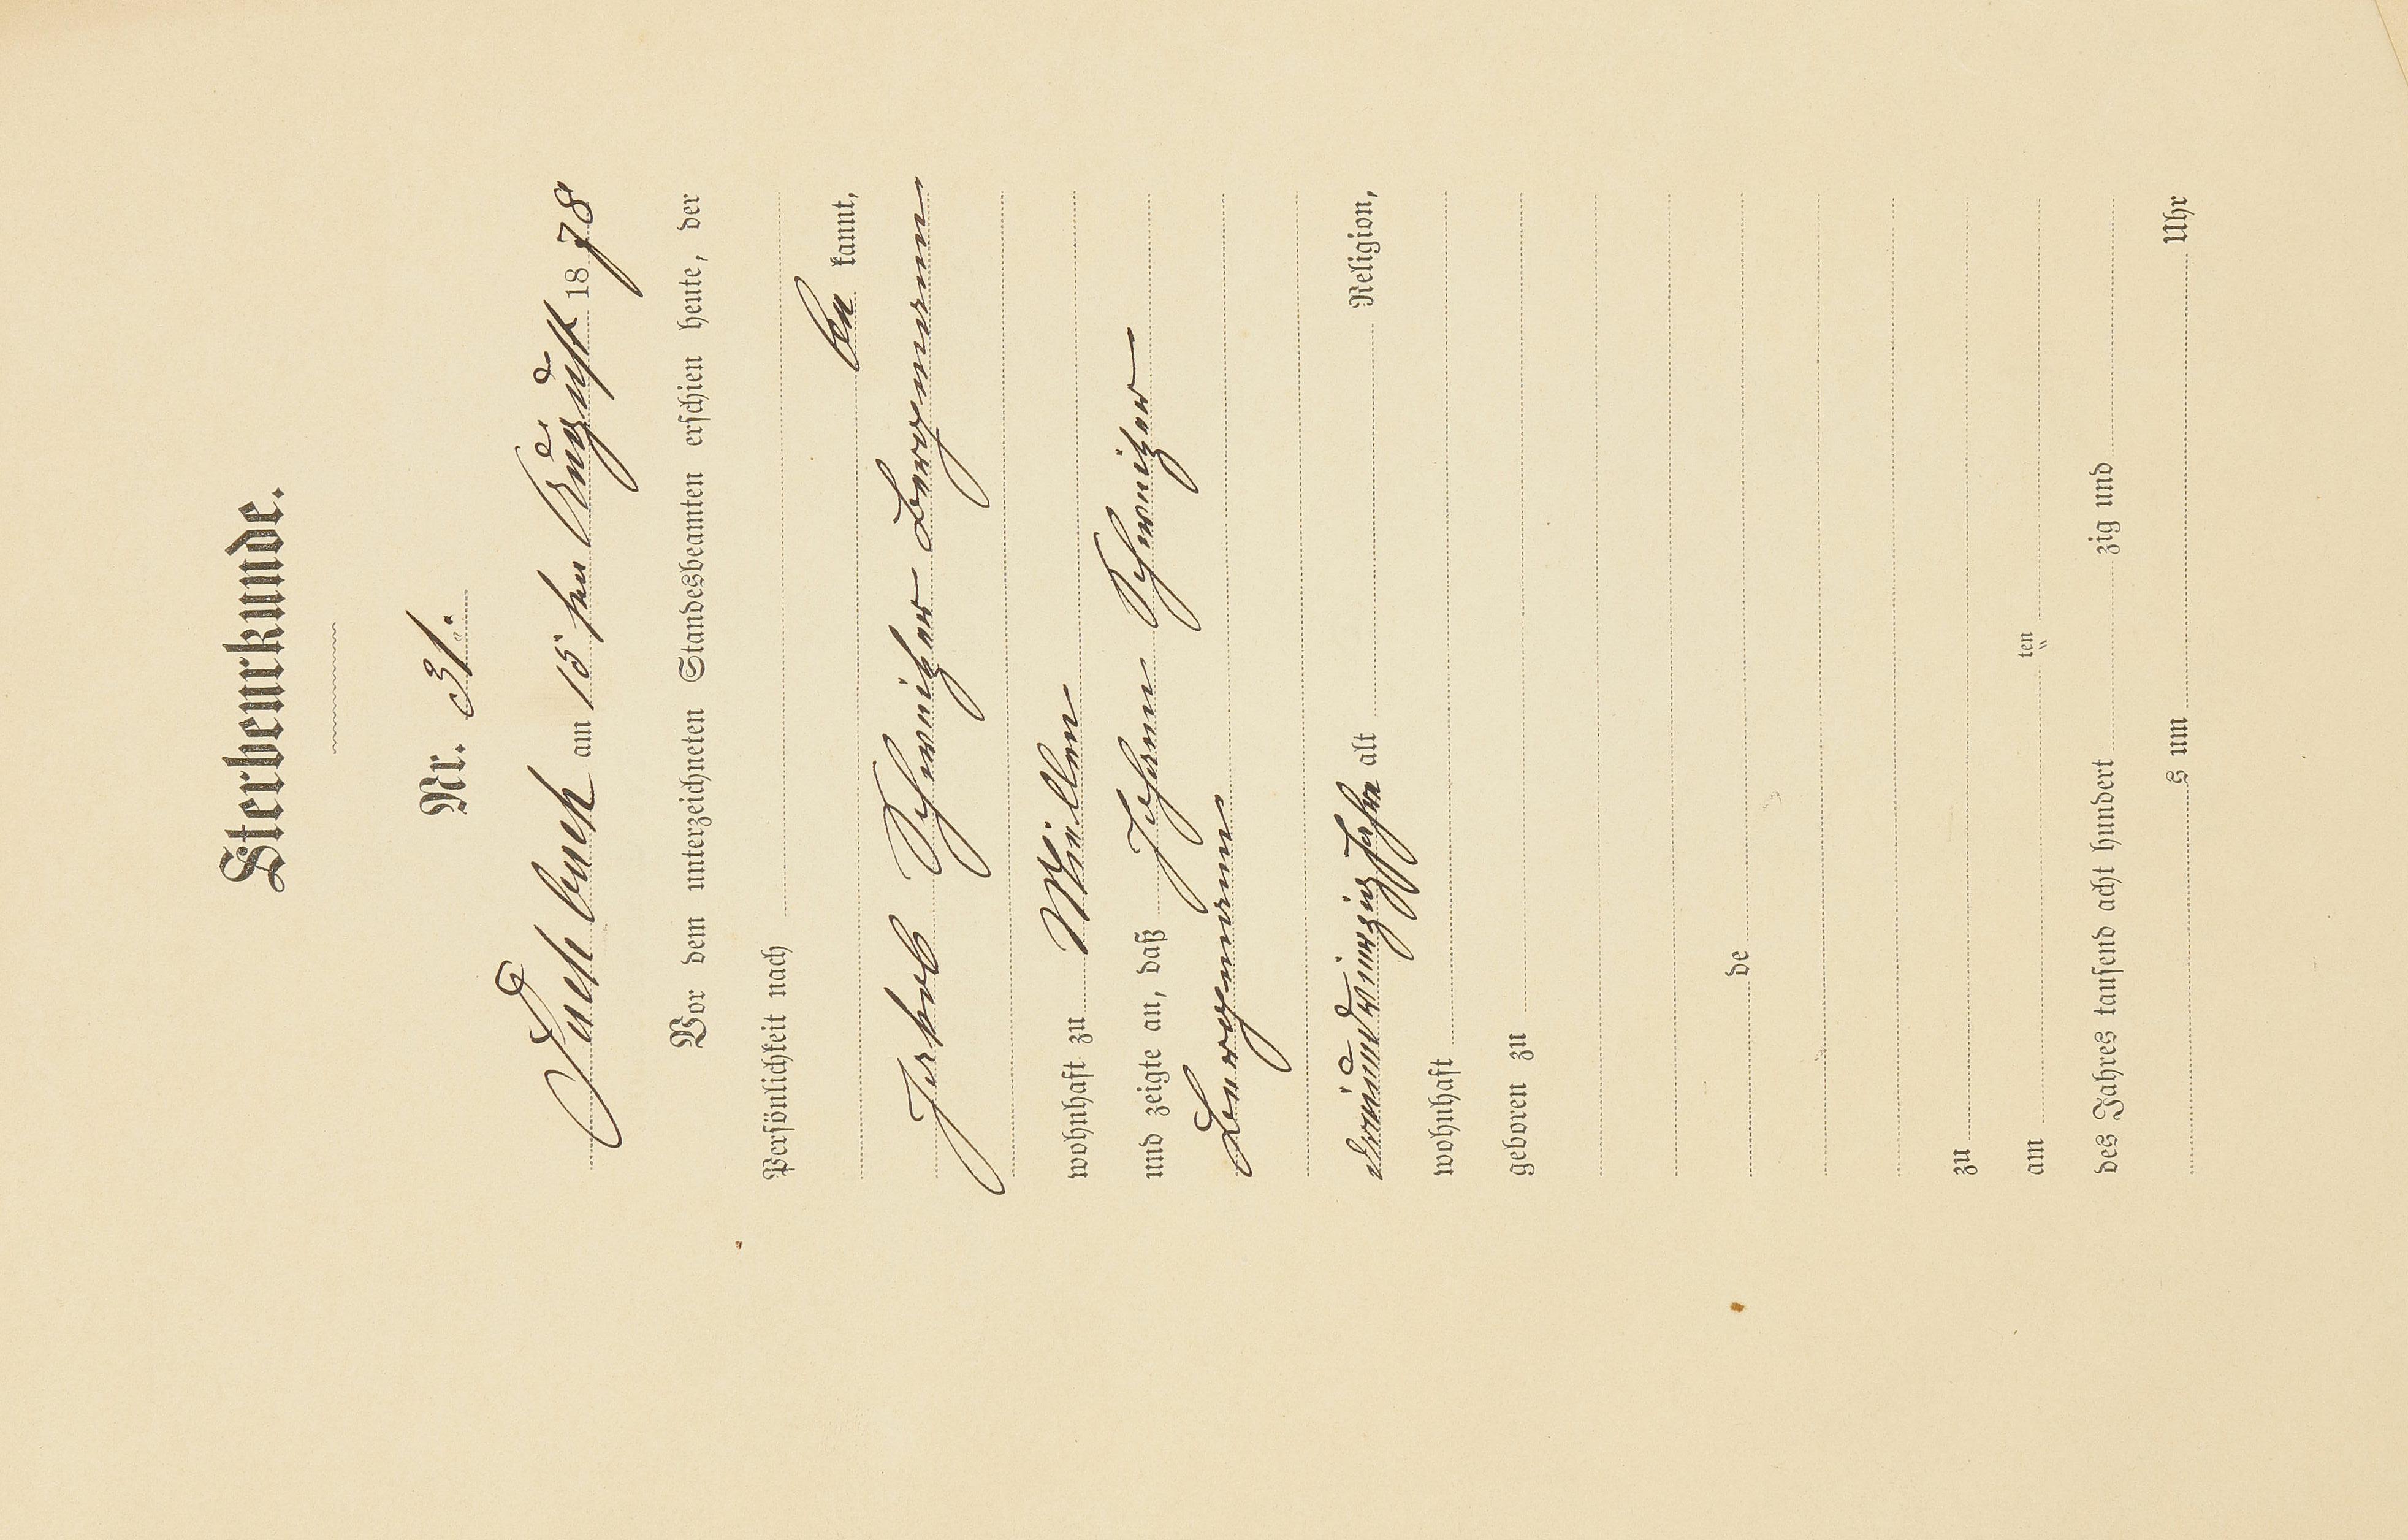 Sterbeurkunde.
Nr. 31.
am 15ten August 1878
Vor dem unterzeichneten Standesbeamten erschien heute, der
Persönlichkeit nach
be kannt,
Jakob Schweitzer Bergmann
wohnhaft zu
und zeigte an, daß Johann Schweitzer
Bergmann
dreiundvierzig Jahre alt Religion,
wohnhaft
geboren zu
de
zu
am ten
des Jahres tausend acht hundert zig und
s um Uhr